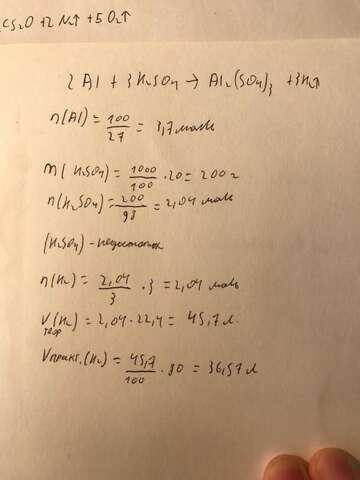 Cs₂O + 2N₂↑ + 5O₂↑
2Al + 3H₂SO₄ → Al₂(SO₄)₃ + 3H₂↑
n(Al) = 100/27 = 3,7 моль
m(H₂SO₄) = 1000/100 · 20 = 200 г
n(H₂SO₄) = 200/98 = 2,04 моль
(H₂SO₄) - недостаток
n(H₂) = 2,04/3 · 3 = 2,04 моль
V теор (H₂) = 2,04 · 22,4 = 45,7 л.
V практ. (H₂) = 45,7/100 · 80 = 36,57 л